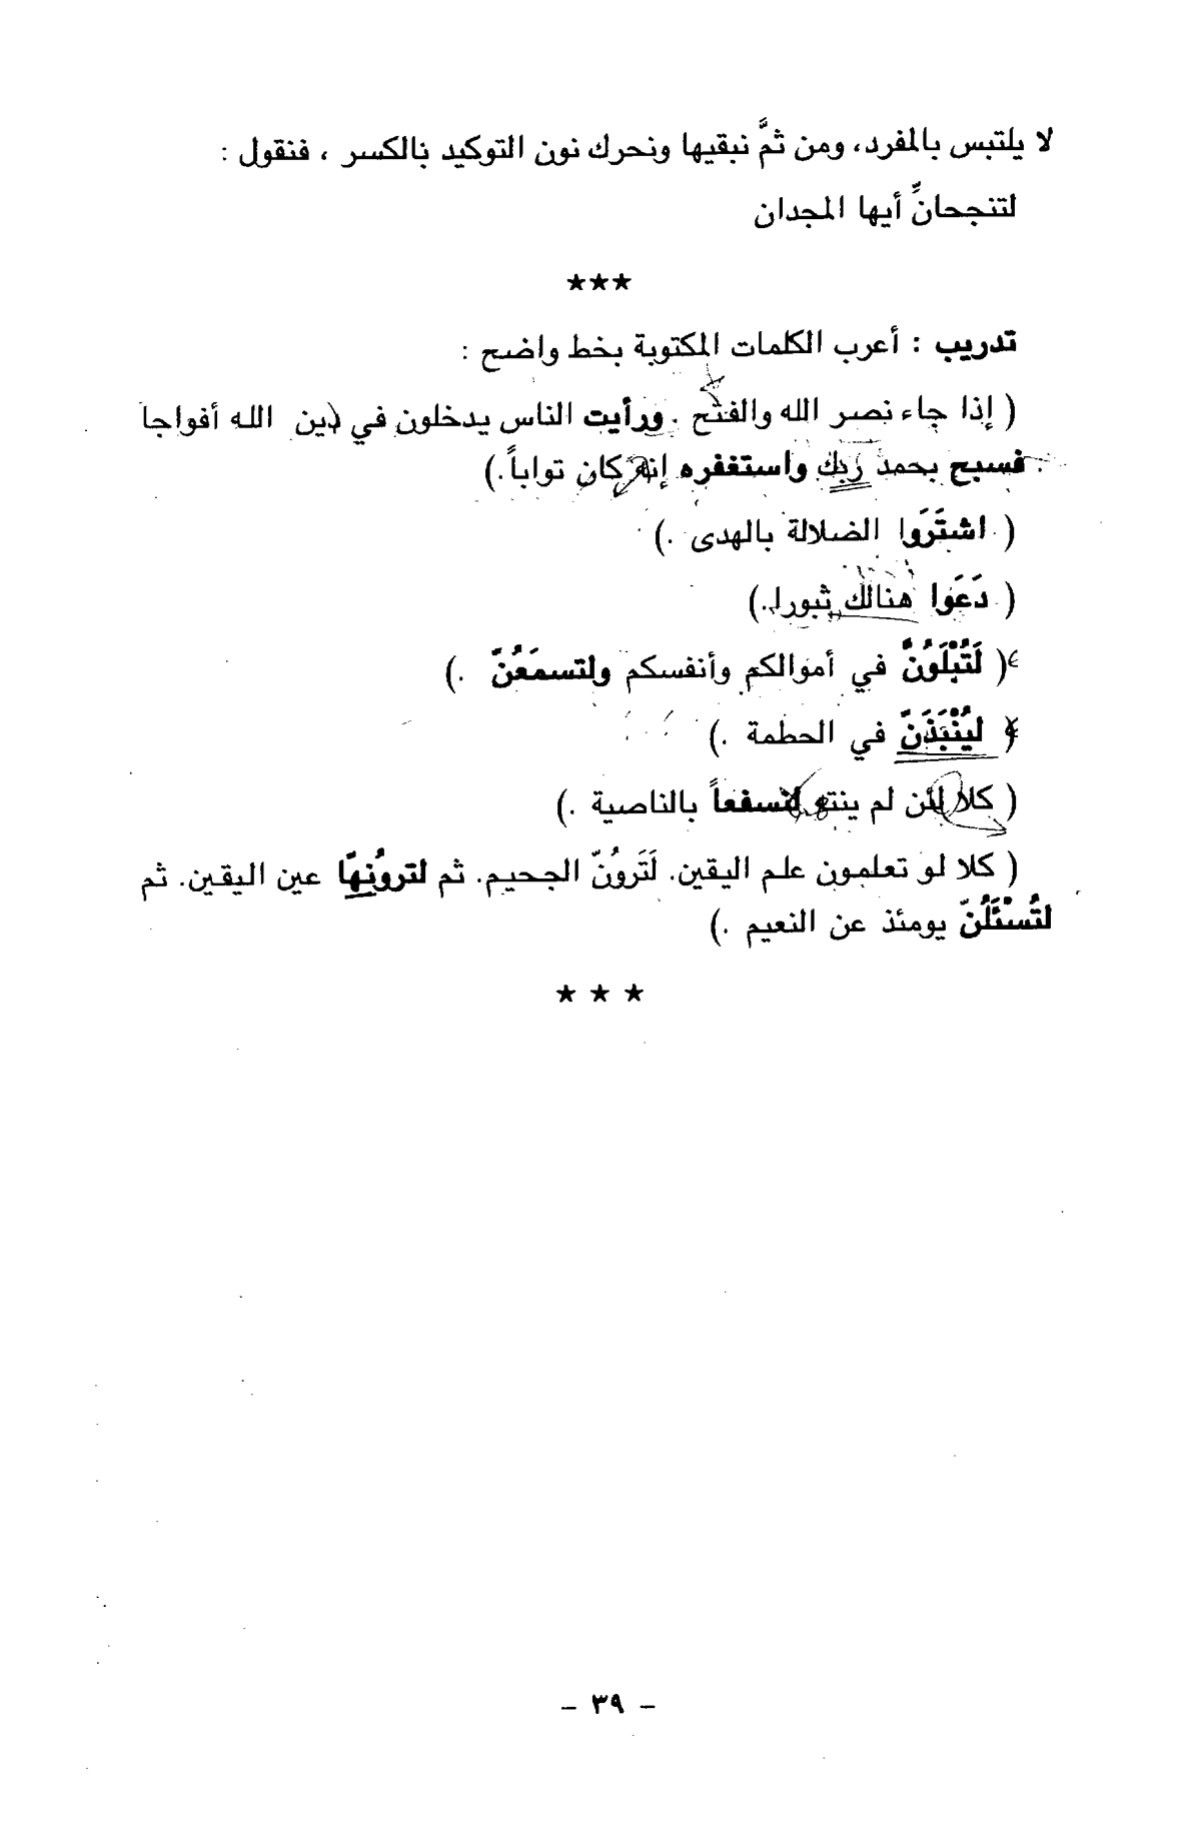 لا يلتبس بالمفرد، ومن ثمَّ نبقيها ونحرك نون التوكيد بالكسر ، فنقول :
لتنجحانِّ أيها المجدان
★★★
تدريب : أعرب الكلمات المكتوبة بخط واضح :
( إذا جاء نصر الله والفتح . ورأيت الناس يدخلون في دين الله أفواجا
. فسبح بحمد ربك واستغفره إنه كان تواباً.)
( اشتَرَوا الضلالة بالهدى .)
( دَعَوا هنالك ثبورا.)
( لَتُبْلَوُنَّ في أموالكم وأنفسكم ولتسمَعُنّ .)
( ليُنْبَذَنّ في الحطمة .)
( كلا لئن لم ينته لنسفعاً بالناصية .)
( كلا لو تعلمون علم اليقين. لَتَروُنّ الجحيم. ثم لتروُنهّا عين اليقين. ثم
لتُسْئَلُنّ يومئذ عن النعيم .)
★ ★ ★
– ٣٩ –